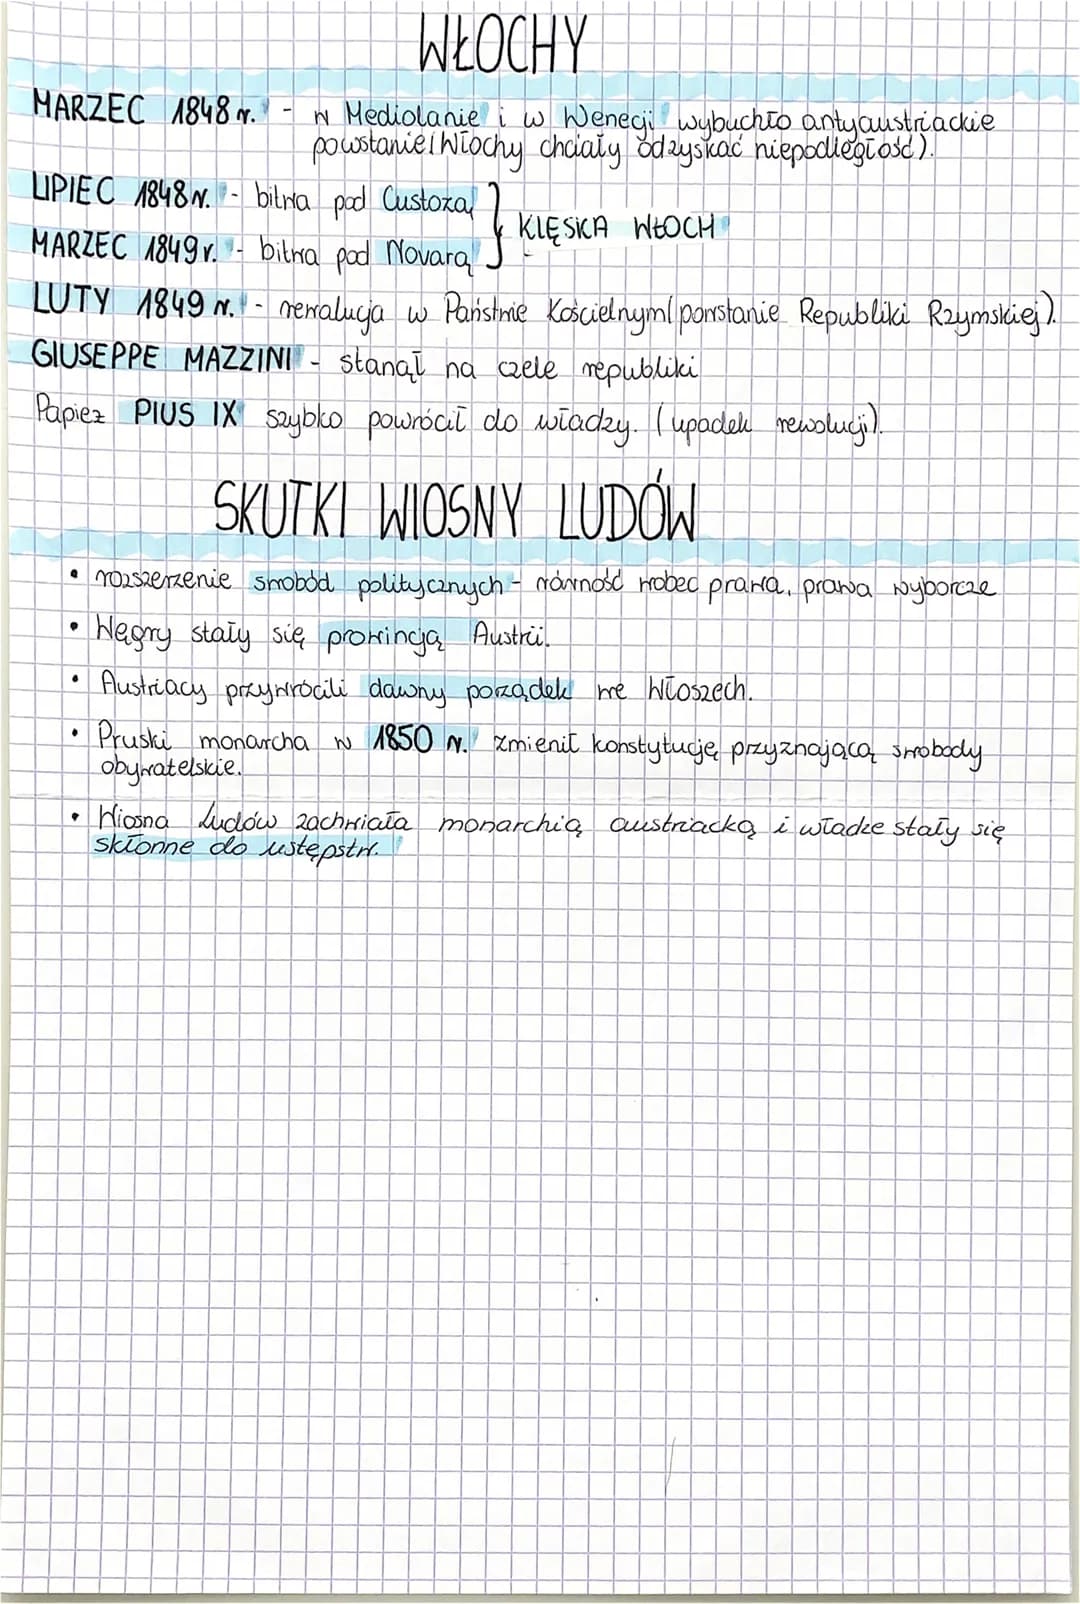 WŁOCHY
MARZEC 1848 r. - w Mediolanie i w Wenecji wybuchło antyaustriackie
powstanie (Włochy chciały odzyskać niepodległość).
LIPIEC 1848 r. - bitwa pod Custozą
MARZEC 1849 r. - bitwa pod Novarą } KLĘSKA WŁOCH
LUTY 1849 r. - rewolucja w Państwie Kościelnym (powstanie Republiki Rzymskiej).
GIUSEPPE MAZZINI - stanął na czele republiki
Papież PIUS IX szybko powrócił do władzy. (upadek rewolucji).
SKUTKI WIOSNY LUDÓW
• rozszerzenie swobód politycznych - równość wobec prawa, prawa wyborcze
• Węgry stały się prowincją Austrii.
• Austriacy przywrócili dawny porządek we Włoszech.
• Pruski monarcha w 1850 r. zmienił konstytucję przyznającą swobody
obywatelskie.
• Wiosna Ludów zachwiała monarchią austriacką i władze stały się
skłonne do ustępstw.